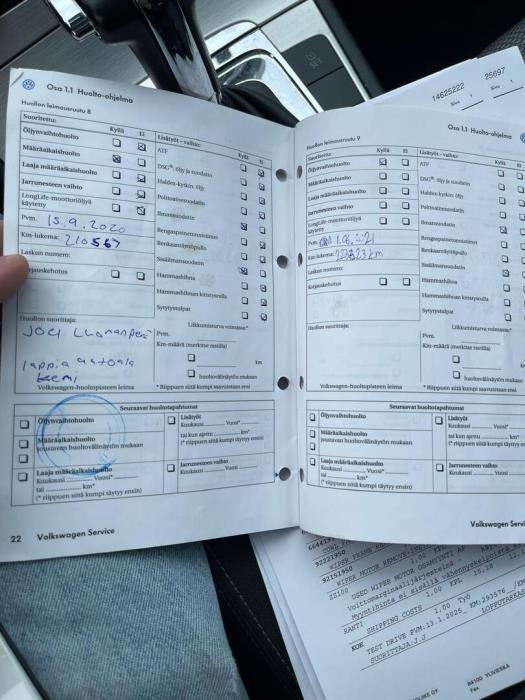 Osa 1.1 Huolto-ohjelma
Huollon leimausruutu 8
Suoritettu:
Kyllä Ei
Öljynvaihtohuolto
Määräaikaishuolto
Laaja määräaikaishuolto
Jarrunesteen vaihto
LongLife-moottoriöljyä
käytetty
Pvm. 15.9.2020
Km-lukema: 210567
Laskun numero:
Korjauskehotus
Huollon suorittaja:
Lappia autoala
Kemi
Volkswagen-huoltopisteen leima
Lisätyöt - vaihto:
Kyllä Ei
ATF
DSG®: öljy ja suodatin
Haldex-kytkin: öljy
Polttoainesuodatin
Ilmansuodatin
Rengaspaineentunnistimet
Renkaansäröpullo
Sisäilmansuodatin
Hammashihna
Hammashihnan kiristysrulla
Sytytystulpat
Liikkumisturva voimassa*
Pvm.
Km-määrä (merkitse rastilla)
km
huoltovälinäytön mukaan
* Riippuen siitä kumpi saavutetaan ensi
Seuraavat huoltotapahtumat
Öljynvaihtohuolto
Määräaikaishuolto
joustavan huoltovälinäytön mukaan
Laaja määräaikaishuolto
Kuukausi Vuosi*
tai km*
(* riippuen siitä kumpi täytyy ensin)
Lisätyöt
Kuukausi Vuosi*
tai kun ajettu km*
(* riippuen siitä kumpi täytyy ensin)
Jarrunesteen vaihto
Kuukausi Vuosi
22 Volkswagen Service
Osa 1.1 Huolto-ohjelma
Huollon leimausruutu 9
Suoritettu:
Kyllä Ei
Öljynvaihtohuolto
Määräaikaishuolto
Laaja määräaikaishuolto
Jarrunesteen vaihto
LongLife-moottoriöljyä
käytetty
Pvm.
Km-lukema:
Laskun numero:
Korjauskehotus
Huollon suorittaja:
Volkswagen-huoltopisteen leima
Lisätyöt - vaihto:
Kyllä Ei
ATF
DSG®: öljy ja suodatin
Haldex-kytkin: öljy
Polttoainesuodatin
Ilmansuodatin
Rengaspaineentunnistimet
Sisäilmansuodatin
Hammashihna
Hammashihnan kiristysrulla
Sytytystulpat
Liikkumisturva voimassa*
Pvm.
Km-määrä (merkitse rastilla)
km
huoltovälinäytön mukaan
* Riippuen siitä kumpi saavutetaan ensi
Seuraavat huoltotapahtumat
Öljynvaihtohuolto
Määräaikaishuolto
joustavan huoltovälinäytön mukaan
Laaja määräaikaishuolto
Kuukausi Vuosi*
tai km*
(* riippuen siitä kumpi täytyy ensin)
Lisätyöt
Kuukausi Vuosi*
tai kun ajettu
(* riippuen siitä kumpi täytyy
Jarrunesteen vaihto
Kuukausi Vuosi
Volkswagen Servi
SET
14625222 25697
Sivu 1 Sivu 1
92221950
WIPER FRAME
92151950
WIPER MOTOR REMOVE
ZZ100 USED WIPER MOTOR OSAMYYNTI
Voittomarginaalijärjestelmä -
Myyntihinta ei sisällä vähennyskelpoista
RAHTI 1,00 KPL 15,18
SHIPPING COSTS
KOE 1,00 Työ
TEST DRIVE PVM:13.1.2025_ KM:293576
SUORITTAJA:J.J LOPPUTARKAS
84100 YLIVIESKA